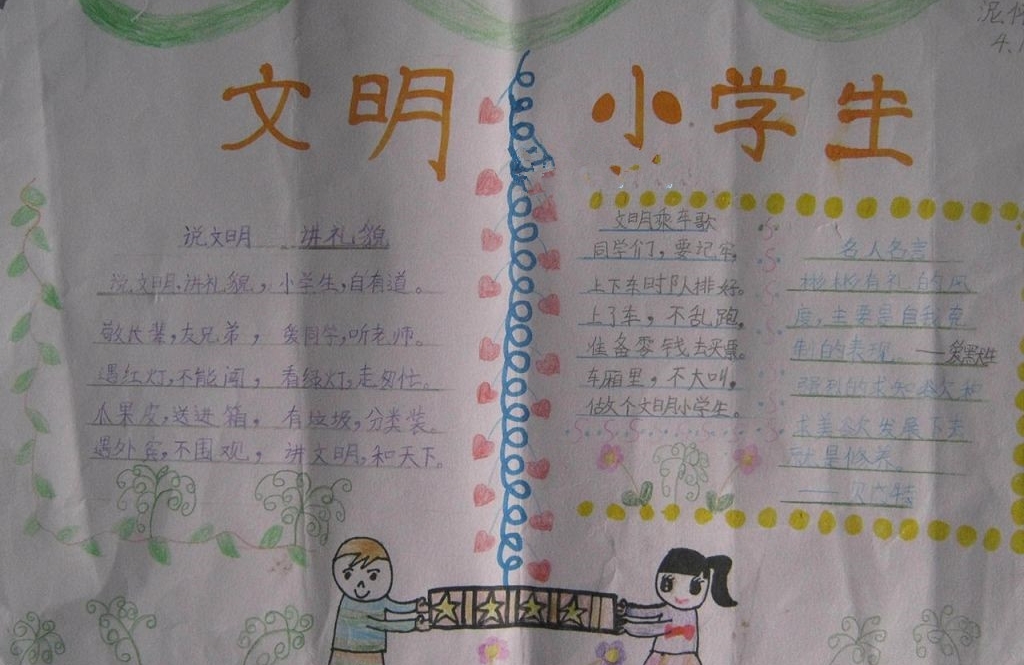 文明 小学生
说文明 讲礼貌
说文明,讲礼貌,小学生,自有道。
敬长辈,友兄弟,爱同学,听老师。
遇红灯,不能闯,看绿灯,走匆忙。
瓜果皮,送进箱,有垃圾,分类装。
遇外宾,不围观,讲文明,和天下。
文明乘车歌
同学们,要记牢,
上下车时队排好。
上了车,不乱跑,
准备零钱去买票。
车厢里,不大叫,
做个文明小学生。
名人名言
彬彬有礼的风
度,主要是自我克
制的表现。——爱默生
强烈的求知欲和
求美欲发展下去
就是修养。
4.1